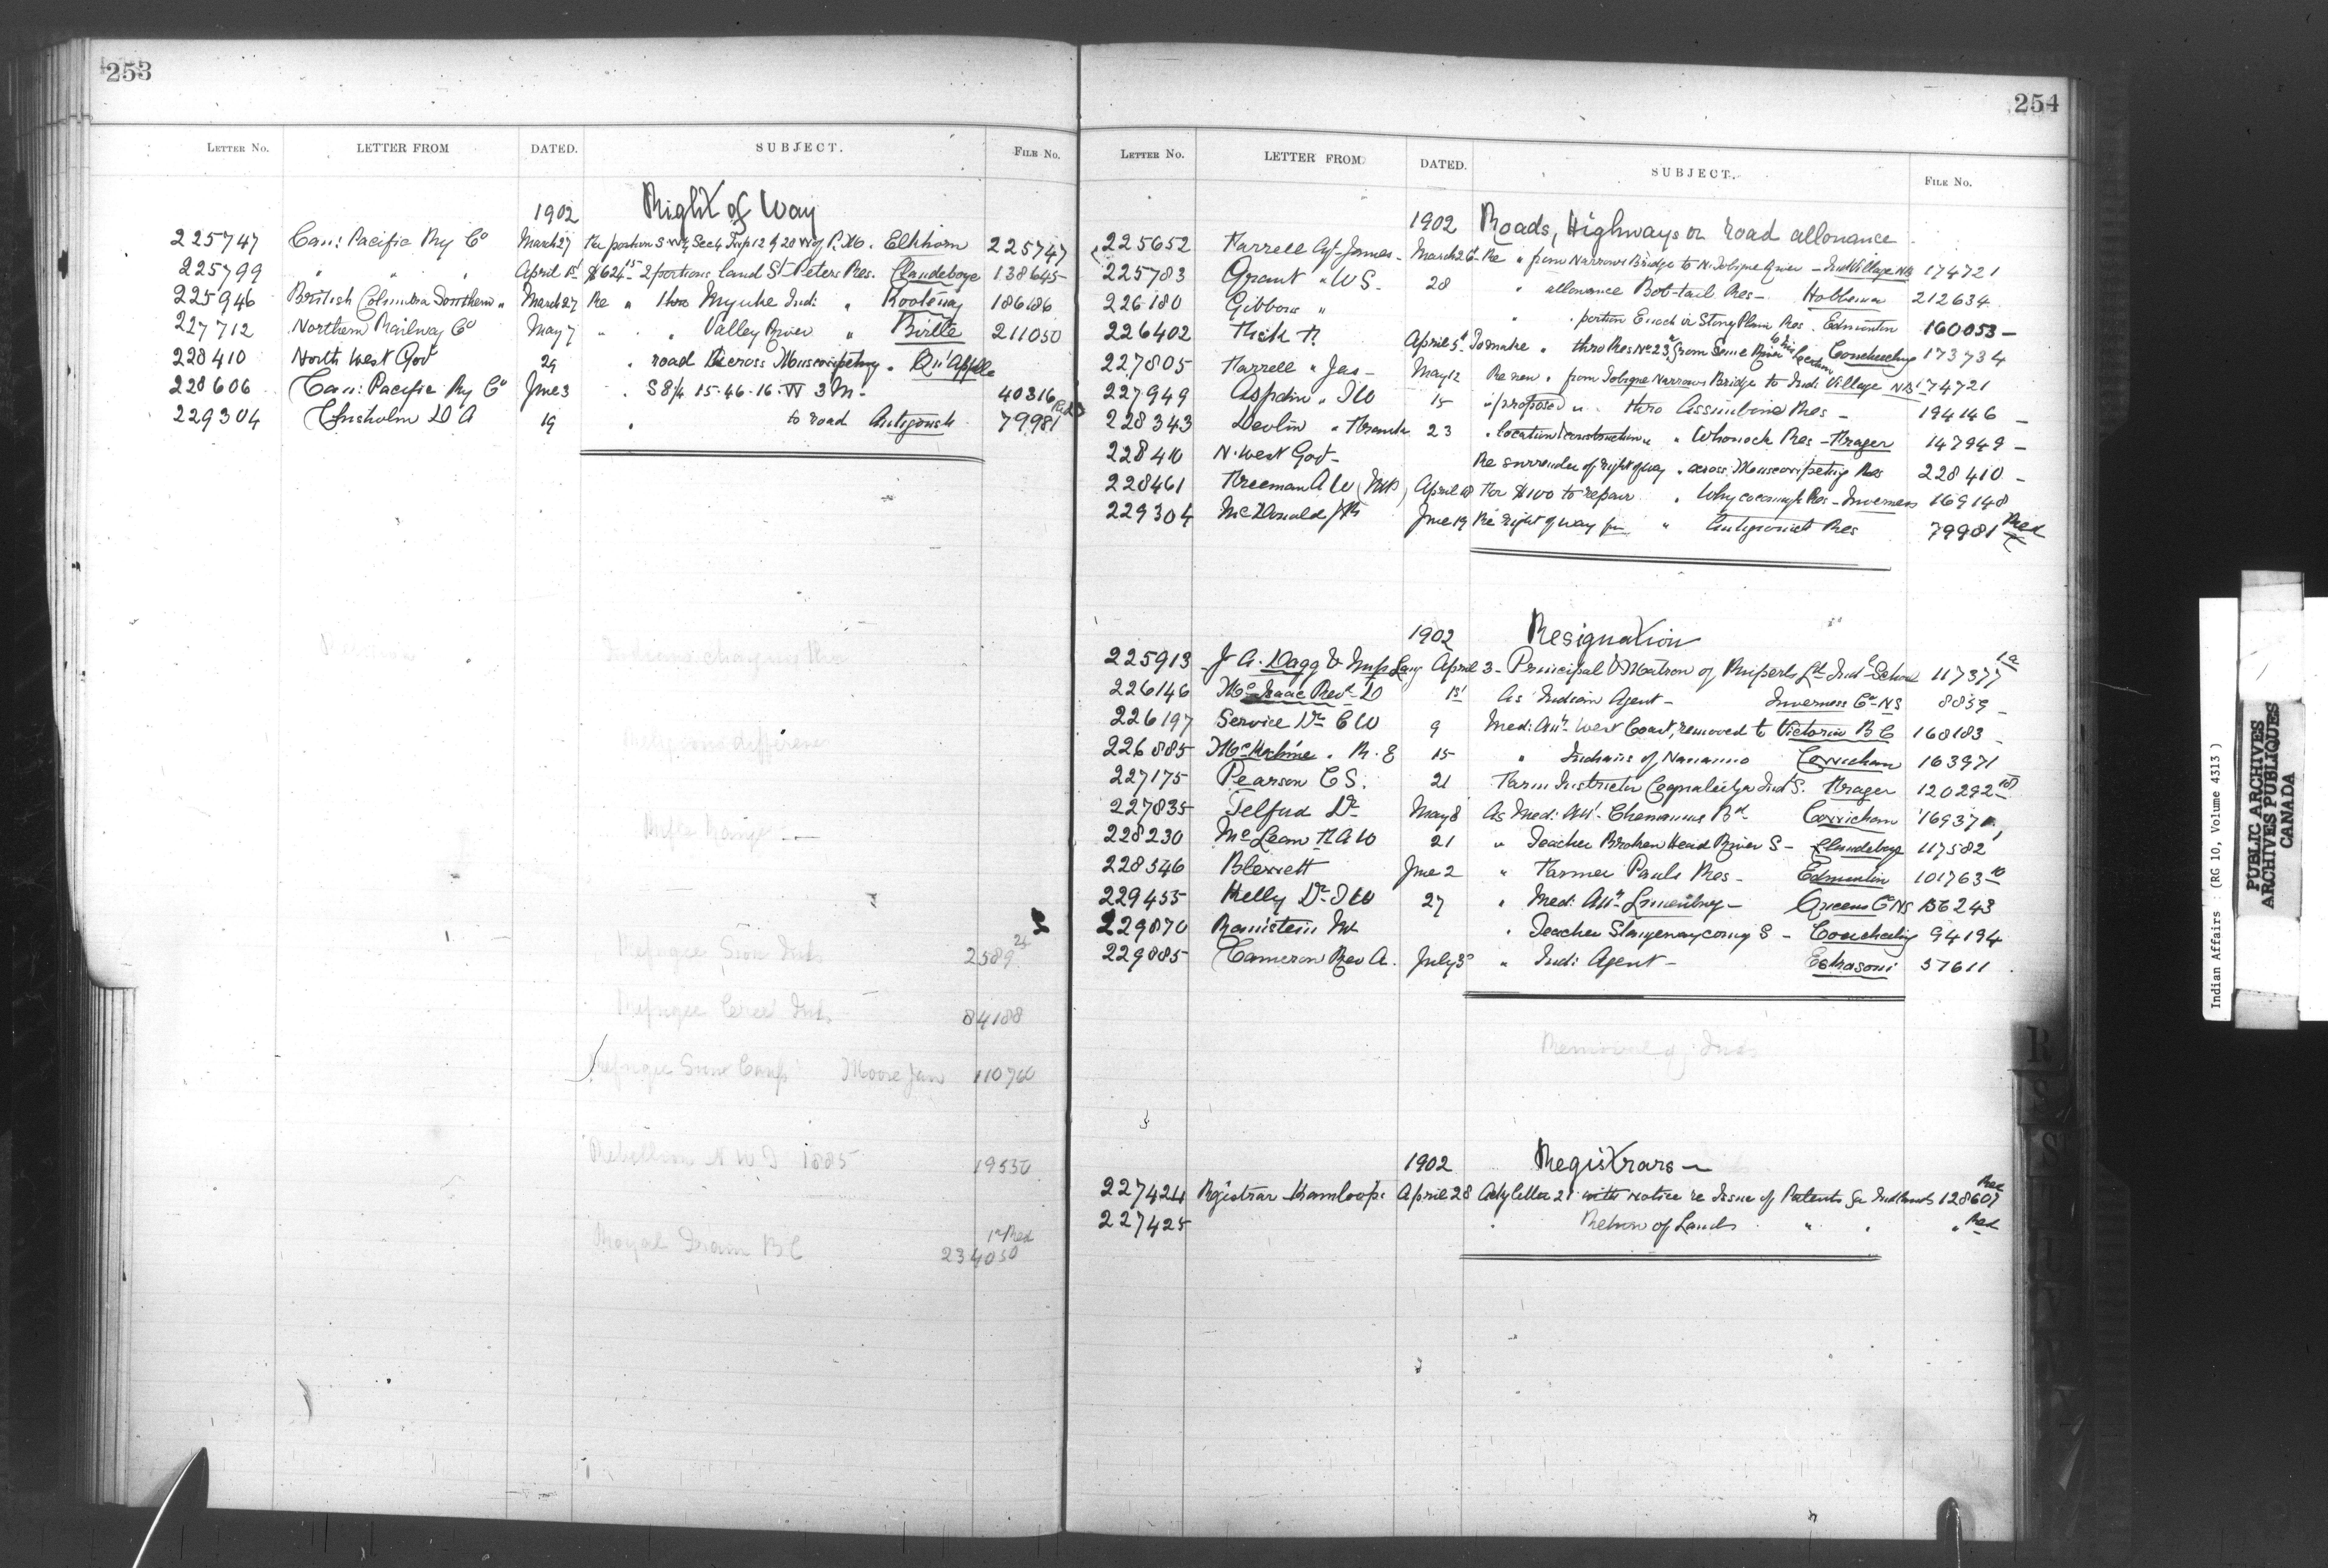 253
LETTER NO. LETTER FROM DATED. SUBJECT. FILE NO.
1902 Right of Way
225747 Can: Pacific Ry Co March 27 Re portion S.W¼ Sec 4 Twp 12 R 20 W of P.M. Elkhorn 225747
225799 " " " April 1st $624.15 2 portions land St Peters Res. Clandeboye 138645
225946 British Columbia Southern " March 27 Re " thro Indi " Kootenay 186186
227712 Northern Railway Co May 7 " " " Valley River " Birtle 211050
228410 North West Govt 29 " road across Muscowpetung " Qu'Appelle
228606 Can: Pacific Ry Co June 3 " S 8¼ 15-46-16-W 3 M- 40316
229304 Chisholm D A 19 " to road Antigonish 79981 Red
Religious difference
Rifle Range
Refugee Sioux Inds 2589
Refugee Cree Inds 84188
Refugee Sioux Camp Moose Jaw 110760
Rebellion N W T 1885 19550
Royal Train B C 234050
254
LETTER NO. LETTER FROM DATED. SUBJECT. FILE NO.
1902 Roads, Highways or road allowance
225652 Farrell Agt James - March 26 Re " from Narrows Bridge to N. Tobique River - Ind Village NB 174721
225783 Grant " W S - 28 " allowance Bob-tail Res - Hobbema 212634
226180 Gibbons " " portion Enoch or Stony Plain Res. Edmonton 160053 -
226402 Fish R April 5th To make " thro Res No 23 from Seine River Couchiching 173734
227805 Farrell " Jas - May 12 Re new " from Tobique Narrows Bridge to Indi Village NB 174721
227949 Aspdin " T W 15 " proposed " " thro Assiniboine Res - 194146 -
228343 Devlin " Frank 23 " location & construction " " Whonock Res - Fraser 147949 -
228410 N. West Govt - Re surrender of right of way " across Muscowpetung Res 228410 -
228461 Freeman A W (MD) April 18 For $100 to repair " Whycocomagh Res - Inverness 169148
229304 McDonald J R June 19 Re right of way for " Antigonish Res 79981 Red
1902 Resignation
225913 J A. Dagg & April 3 - Principal & Matron of Ruperts Ld Indl School 117377
226146 McIsaac Revd D 1st As Indian Agent - Inverness Co NS 8859 -
226197 Service Dr C W 9 Med: Att. West Coast, removed to Victoria B C 168183 -
226885 McKechnie " R. E 15 " Indians of Nanaimo Cowichan 163971
227175 Pearson C S. 21 Farm Instructor Coqualeetza Ind S. Fraser 120292
227835 Telford Dr May 8 As Med: Att. Chemainus Bd - Cowichan 169371
228230 McLean F A W 21 " Teacher Broken Head River S - Clandeboye 117582
228546 Blewett June 2 " Farmer Pauls Res - Edmonton 101763
229455 Kelly Dr J W 27 " Med: Att. Lunenburg - Queens Co NS 156243
229870 Banistein Mr " Teacher S - Couchiching 94194
229885 Cameron Rev A. July 3 " Indi Agent - Eskasoni 57611
Removal of Inds
1902 Registrars -
227424 Registrar Kamloops April 28 Ackg letter 21 with notice re Issue of Patents for Ind Lands 128607 Red
227425 " Return of Lands " " " Red
R
S
Indian Affairs : (RG 10, Volume 4313 )
PUBLIC ARCHIVES
ARCHIVES PUBLIQUES
CANADA